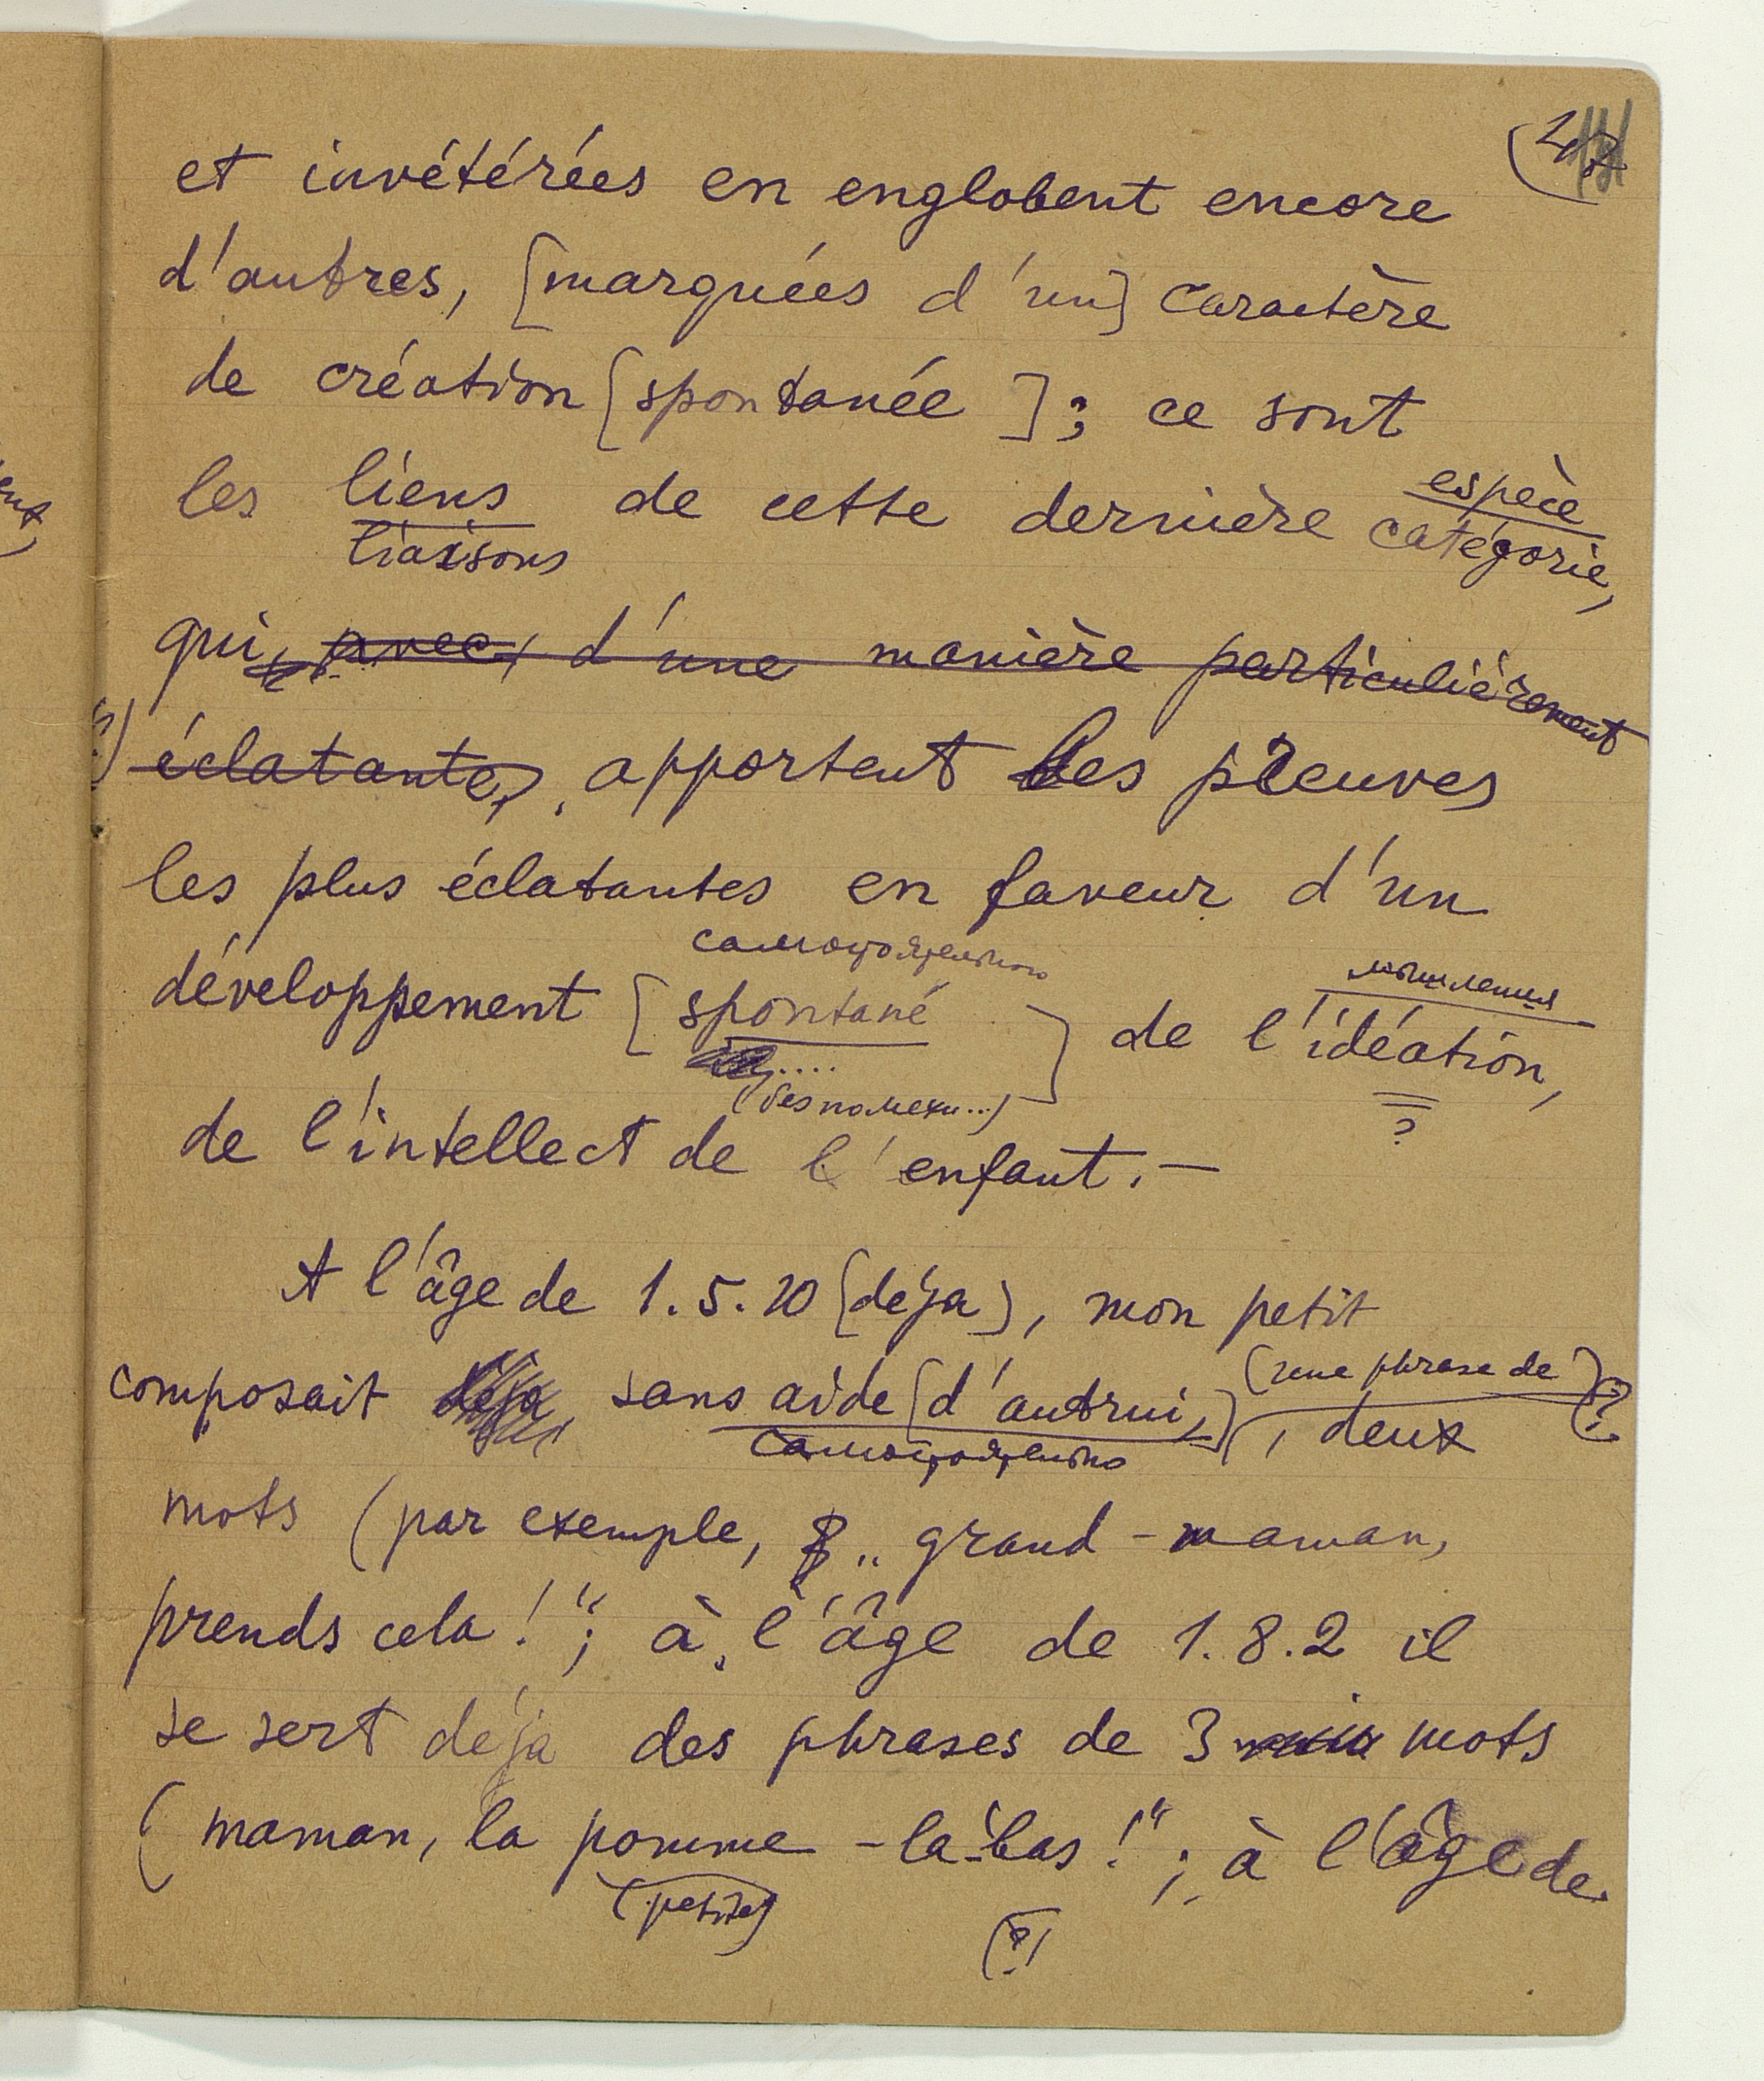 et invétérées en englobent encore
d'autres, [marquées d'un] caractère
de création [spontanée]; ce sont
espèce
les liens de cette dernière catégorie,
liaisons
qui, avec, d'une manière particulièrement
éclatante, apportent les preuves
les plus éclatantes en faveur d'un
самочродительно
мышления
développement [spontané] de l'idéation,
....
(без помехи...)
?
de l'intellect de l'enfant. —
A l'âge de 1.5.10 [déja], mon petit
(une phrase de) (?)
composait déja, sans aide [d'autrui,], deux
mots (par exemple, „grand-maman,
prends cela!“; à l'âge de 1.8.2 il
se sert déja des phrases de 3 mots
(maman, la pomme - la-bas!“; à l'âge de
(petite)
(?)